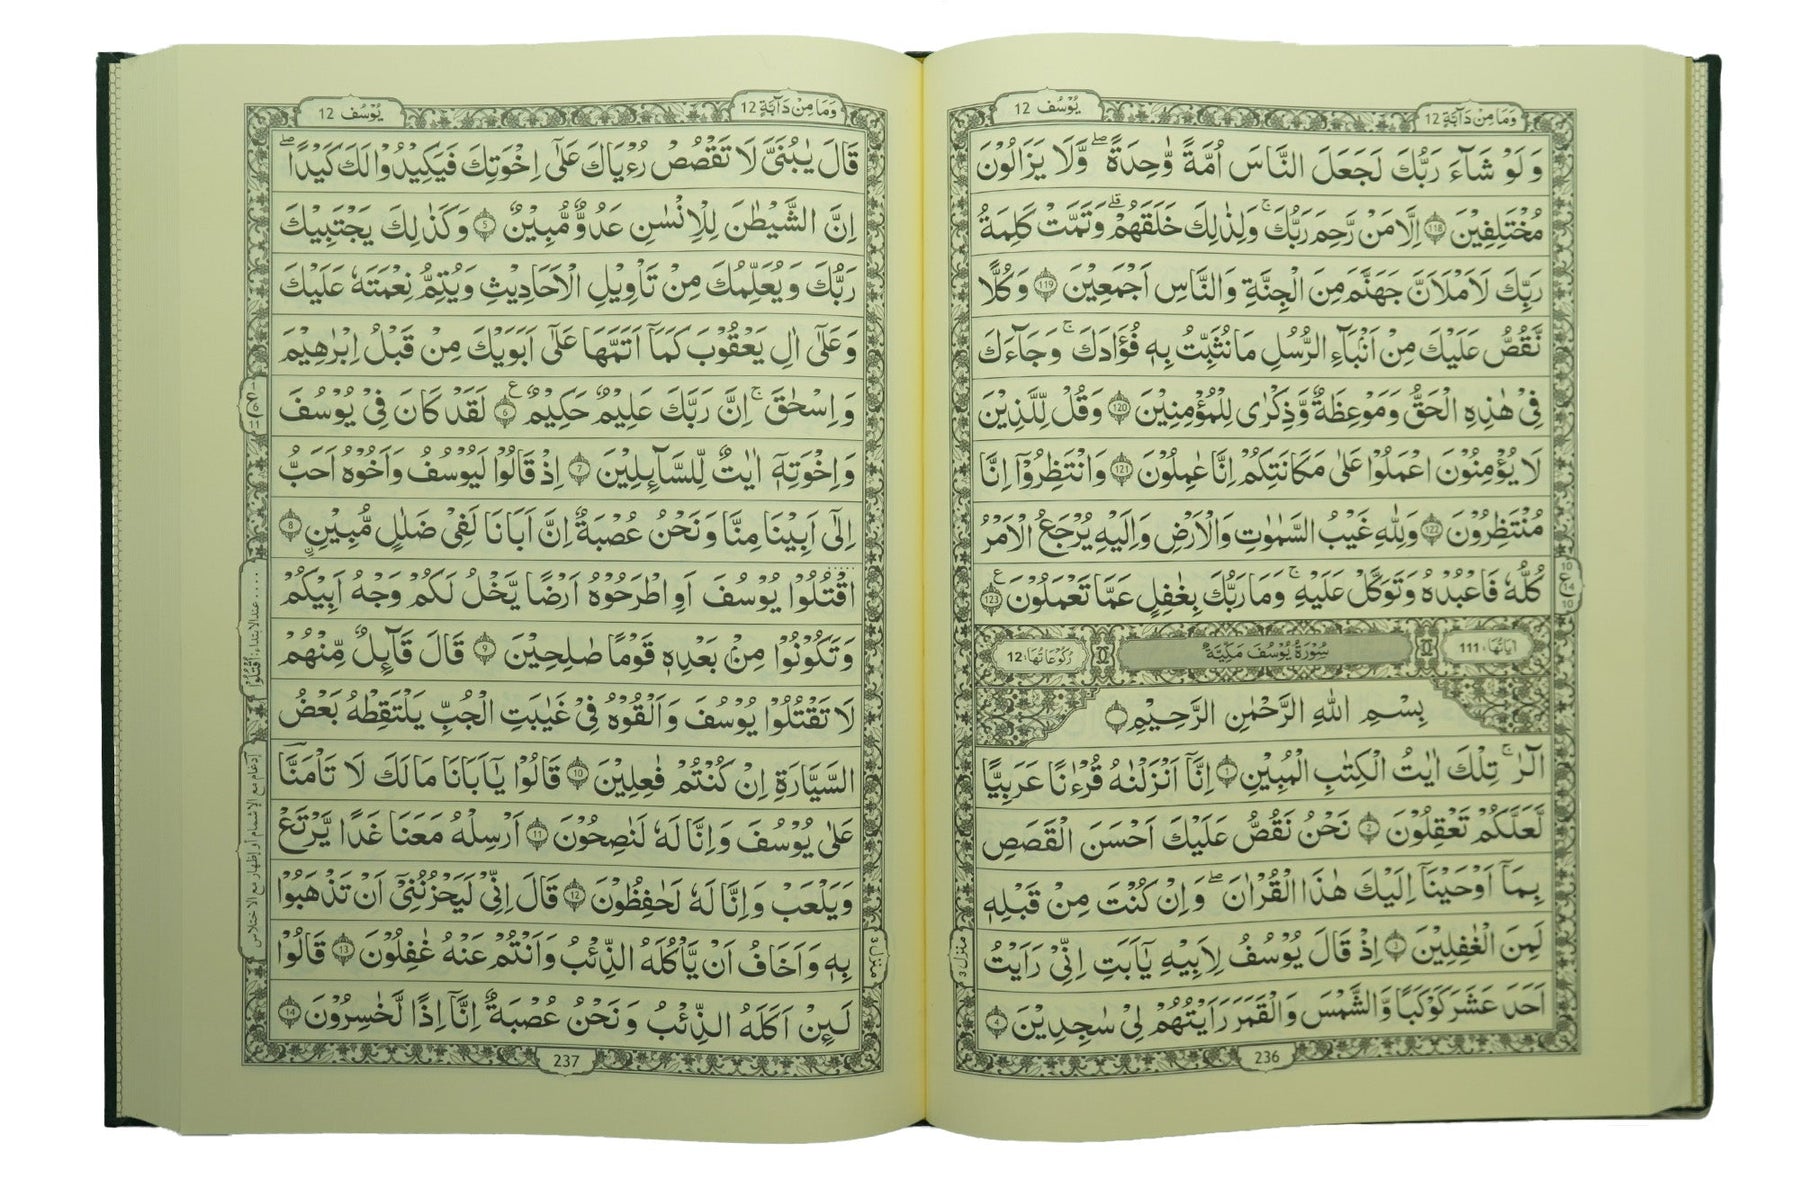 وَمَا مِنْ دَآبَّةٍ 12
يُوْسُف 12
وَلَوْ شَآءَ رَبُّكَ لَجَعَلَ النَّاسَ اُمَّةً وَّاحِدَةً ۖ وَّلَا يَزَالُوْنَ
مُخْتَلِفِيْنَ 118 اِلَّا مَنْ رَّحِمَ رَبُّكَ ۚ وَلِذٰلِكَ خَلَقَهُمْ ۗ وَتَمَّتْ كَلِمَةُ
رَبِّكَ لَاَمْلَاَنَّ جَهَنَّمَ مِنَ الْجِنَّةِ وَالنَّاسِ اَجْمَعِيْنَ 119 وَكُلًّا
نَّقُصُّ عَلَيْكَ مِنْ اَنْۢبَآءِ الرُّسُلِ مَا نُثَبِّتُ بِهٖ فُؤَادَكَ ۚ وَجَآءَكَ
فِيْ هٰذِهِ الْحَقُّ وَمَوْعِظَةٌ وَّذِكْرٰى لِلْمُؤْمِنِيْنَ 120 وَقُلْ لِّلَّذِيْنَ
لَا يُؤْمِنُوْنَ اعْمَلُوْا عَلٰى مَكَانَتِكُمْ اِنَّا عٰمِلُوْنَ 121 وَانْتَظِرُوْا اِنَّا
مُنْتَظِرُوْنَ 122 وَلِلّٰهِ غَيْبُ السَّمٰوٰتِ وَالْاَرْضِ وَاِلَيْهِ يُرْجَعُ الْاَمْرُ
كُلُّهٗ فَاعْبُدْهُ وَتَوَكَّلْ عَلَيْهِ ۚ وَمَا رَبُّكَ بِغٰفِلٍ عَمَّا تَعْمَلُوْنَ 123 ع
ع 10 10
اٰيَاتُهَا 111
سُوْرَةُ يُوْسُفَ مَكِّيَّةٌ
رُكُوْعَاتُهَا 12
بِسْمِ اللّٰهِ الرَّحْمٰنِ الرَّحِيْمِ
الٓرٰ ۚ تِلْكَ اٰيٰتُ الْكِتٰبِ الْمُبِيْنِ 1 اِنَّآ اَنْزَلْنٰهُ قُرْءٰنًا عَرَبِيًّا
لَّعَلَّكُمْ تَعْقِلُوْنَ 2 نَحْنُ نَقُصُّ عَلَيْكَ اَحْسَنَ الْقَصَصِ
بِمَآ اَوْحَيْنَآ اِلَيْكَ هٰذَا الْقُرْاٰنَ ۖ وَاِنْ كُنْتَ مِنْ قَبْلِهٖ
لَمِنَ الْغٰفِلِيْنَ 3 اِذْ قَالَ يُوْسُفُ لِاَبِيْهِ يٰٓاَبَتِ اِنِّيْ رَاَيْتُ
اَحَدَ عَشَرَ كَوْكَبًا وَّالشَّمْسَ وَالْقَمَرَ رَاَيْتُهُمْ لِيْ سٰجِدِيْنَ 4
منزل ٣
236
وَمَا مِنْ دَآبَّةٍ 12
يُوْسُف 12
قَالَ يٰبُنَيَّ لَا تَقْصُصْ رُءْيَاكَ عَلٰٓى اِخْوَتِكَ فَيَكِيْدُوْا لَكَ كَيْدًا ۖ
اِنَّ الشَّيْطٰنَ لِلْاِنْسٰنِ عَدُوٌّ مُّبِيْنٌ 5 وَكَذٰلِكَ يَجْتَبِيْكَ
رَبُّكَ وَيُعَلِّمُكَ مِنْ تَاْوِيْلِ الْاَحَادِيْثِ وَيُتِمُّ نِعْمَتَهٗ عَلَيْكَ
وَعَلٰٓى اٰلِ يَعْقُوْبَ كَمَآ اَتَمَّهَا عَلٰٓى اَبَوَيْكَ مِنْ قَبْلُ اِبْرٰهِيْمَ
وَاِسْحٰقَ ۚ اِنَّ رَبَّكَ عَلِيْمٌ حَكِيْمٌ 6 ع لَقَدْ كَانَ فِيْ يُوْسُفَ
وَاِخْوَتِهٖٓ اٰيٰتٌ لِّلسَّآئِلِيْنَ 7 اِذْ قَالُوْا لَيُوْسُفُ وَاَخُوْهُ اَحَبُّ
اِلٰٓى اَبِيْنَا مِنَّا وَنَحْنُ عُصْبَةٌ اِنَّ اَبَانَا لَفِيْ ضَلٰلٍ مُّبِيْنٍ 8
اقْتُلُوْا يُوْسُفَ اَوِ اطْرَحُوْهُ اَرْضًا يَّخْلُ لَكُمْ وَجْهُ اَبِيْكُمْ
وَتَكُوْنُوْا مِنْۢ بَعْدِهٖ قَوْمًا صٰلِحِيْنَ 9 قَالَ قَآئِلٌ مِّنْهُمْ
لَا تَقْتُلُوْا يُوْسُفَ وَاَلْقُوْهُ فِيْ غَيٰبَتِ الْجُبِّ يَلْتَقِطْهُ بَعْضُ
السَّيَّارَةِ اِنْ كُنْتُمْ فٰعِلِيْنَ 10 قَالُوْا يٰٓاَبَانَا مَا لَكَ لَا تَاْمَنَّا
عَلٰى يُوْسُفَ وَاِنَّا لَهٗ لَنٰصِحُوْنَ 11 اَرْسِلْهُ مَعَنَا غَدًا يَّرْتَعْ
وَيَلْعَبْ وَاِنَّا لَهٗ لَحٰفِظُوْنَ 12 قَالَ اِنِّيْ لَيَحْزُنُنِيْٓ اَنْ تَذْهَبُوْا
بِهٖ وَاَخَافُ اَنْ يَّاْكُلَهُ الذِّئْبُ وَاَنْتُمْ عَنْهُ غٰفِلُوْنَ 13 قَالُوْا
لَئِنْ اَكَلَهُ الذِّئْبُ وَنَحْنُ عُصْبَةٌ اِنَّآ اِذًا لَّخٰسِرُوْنَ 14
عند الابتداء: اُقْتُلُوْا
إدغام مع الإشمام أو إظهار مع الاختلاس
منزل ٣
237